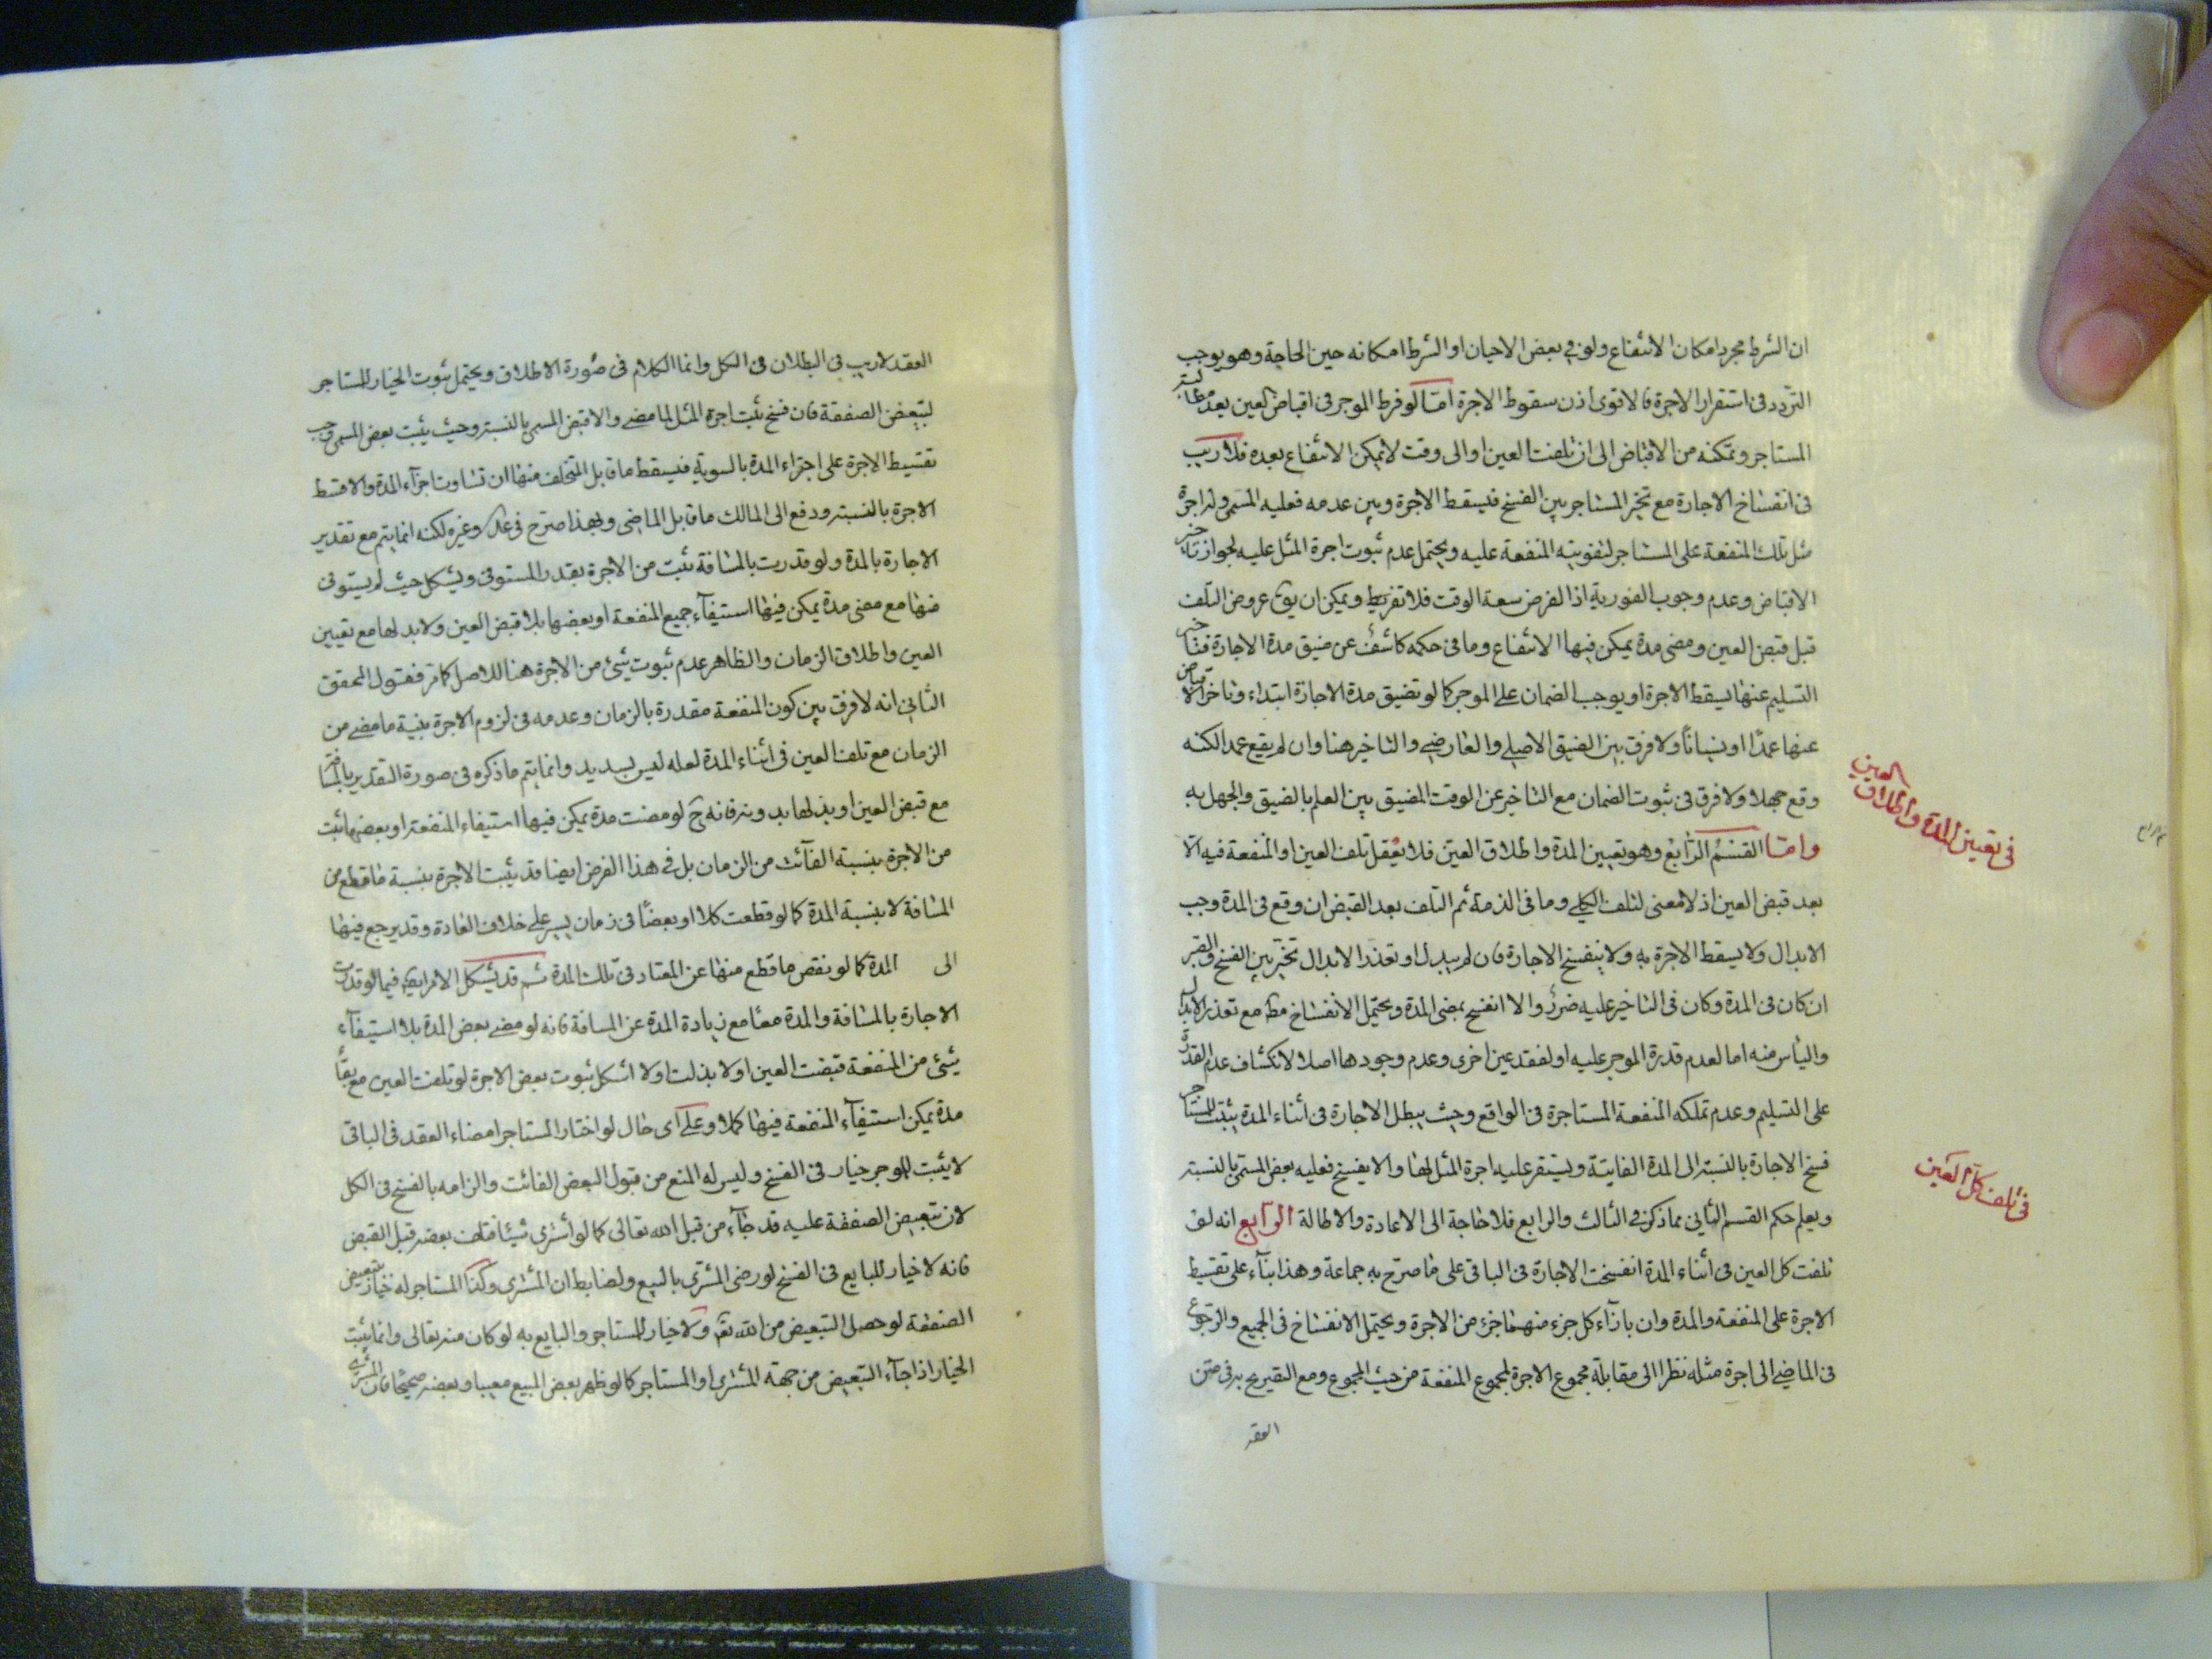 ان الشرط مجرد امكان الانتفاع ولو في بعض الاحيان او الشرط امكانه حين الحاجة وهو يوجب
التردد في استقرار الاجرة فالاقوى اذن سقوط الاجرة امّا لو فرط الموجر في اقباض العين بعد مطالبته
المستاجر وتمكنه من الاقباض الى ان تلفت العين او الى وقت لا يمكن الانتفاع بعده فلا ريب
في انفساخ الاجارة مع تخير المستاجر بين الفسخ فيسقط الاجرة وبين عدمه فعليه المسمى وله اجرة
مثل تلك المنفعة على المستاجر لتفويته المنفعة عليه ويحتمل عدم ثبوت اجرة المثل عليه لجواز تاخير
الاقباض وعدم وجوب الفورية اذ الفرض سعة الوقت فلا تفريط ويمكن ان يق عروض التلف
قبل قبض العين ومضى مدة يمكن فيها الانتفاع وما في حكمه كاشف عن ضيق مدة الاجارة فتاخير
التسليم عنها يسقط الاجرة او يوجب الضمان على الموجر كما لو تضيق مدة الاجارة ابتداء وتاخر الاقباض
عنها عمدًا او نسيانًا ولا فرق بين الضيق الاصلي والعارضي والتاخير هنا وان لم يقع عمدا لكنه
وقع جهلا ولا فرق في ثبوت الضمان مع التاخير عن الوقت المضيق بين العلم بالضيق والجهل به
في تعيين المدة واطلاق العين
وامّا القسم الرّابع وهو تعيين المدة واطلاق العين فلا يعقل تلف العين او المنفعة فيه الا
بعد قبض العين اذ لا معنى لتلف الكلي وما في الذمة ثم التلف بعد القبض ان وقع في المدة وجب
الابدال ولا يسقط الاجرة به ولا ينفسخ الاجارة فان لم يبدل او تعذر الابدال تخير بين الفسخ والصبر
ان كان في المدة وكان في التاخير عليه ضرر والا انفسخ بمضى المدة ويحتمل الانفساخ مط مع تعذر الابدال
والياس منه اما لعدم قدرة الموجر عليه او لفقد عين اخرى وعدم وجودها اصلا لانكشاف عدم القدرة
على التسليم وعدم تملكه المنفعة المستاجرة في الواقع وحيث يبطل الاجارة في أثناء المدة يثبت للمستاجر
فسخ الاجارة بالنسبة الى المدة الفايتة ويستقر عليه اجرة المثل لها والا يفسخ فعليه بعض المسمى بالنسبة
في تلف كل العين
ويعلم حكم القسم الثاني مما ذكر في الثالث والرابع فلا حاجة الى الاعادة والاطالة الرّابع انه لو
تلفت كل العين في أثناء المدة انفسخت الاجارة في الباقي على ما صرح به جماعة وهذا بنآء على تقسيط
الاجرة على المنفعة والمدة وان بازآء كل جزء منهما جزء من الاجرة ويحتمل الانفساخ في الجميع والرجوع
في الماضي الى اجرة مثله نظرا الى مقابلة مجموع الاجرة لمجموع المنفعة من حيث المجموع ومع التصريح به في متن
العقد
العقد لا ريب في البطلان في الكل وانما الكلام في صورة الاطلاق ويحتمل ثبوت الخيار للمستاجر
لتبعض الصفقة فان فسخ ثبت اجرة المثل لما مضى والا قبض المسمى بالنسبة وحيث يثبت بعض المسمى وجب
تقسيط الاجرة على اجزاء المدة بالسوية فيسقط ما قابل المتخلف منها ان تساوت اجزآء المدة والا قسط
الاجرة بالنسبة ودفع الى المالك ما قابل الماضى وبهذا صرح في وغيره لكنه انما يتم مع تقدير
الاجارة بالمدة ولو قدرت بالمسافة ثبت من الاجرة بقدر المستوفى ويشكل حيث لم يستوفى
منها مع مضى مدة يمكن فيها استيفآء جميع المنفعة او بعضها بلا قبض العين ولا بذلها مع تعيين
العين واطلاق الزمان والظاهر عدم ثبوت شئ من الاجرة هنا للاصل كما مر فقول المحقق
الثاني انه لا فرق بين كون المنفعة مقدرة بالزمان وعدمه في لزوم الاجرة بنسبة ما مضى من
الزمان مع تلف العين في أثناء المدة لعله ليس بسديد وانما يتم ما ذكره في صورة التقدير بالمسافة
مع قبض العين او بذلها بدونه فانه ح لو مضت مدة يمكن فيها استيفاء المنفعة او بعضها ثبت
من الاجرة بنسبة الفآئت من الزمان بل في هذا الفرض ايضا قد يثبت الاجرة بنسبة ما قطع من
المسافة لا بنسبة المدة كما لو قطعت كلا او بعضًا في زمان يسير على خلاف العادة وقد يرجع فيها
الى المدة كما لو نقص ما قطع منها عن المعتاد في تلك المدة ثم قد يشكل الامر ايض فيما لو قدرت
الاجارة بالمسافة والمدة معًا مع زيادة المدة عن المسافة فانه لو مضى بعض المدة بلا استيفآء
شئ من المنفعة قبضت العين اولا بذلت اولا اشكل ثبوت بعض الاجرة لو تلفت العين مع بقآء
مدة يمكن استيفآء المنفعة فيها كملا وعلى اى حال لو اختار المستاجر امضاء العقد في الباقي
لا يثبت للموجر خيار في الفسخ وليس له المنع من قبول البعض الفائت والزامه بالفسخ في الكل
لان تبعيض الصفقة عليه قد جآء من قبل الله تعالى كما لو أشترى شيئا فتلف بعضه قبل القبض
فانه لا خيار للبايع في الفسخ لو رضى المشترى بالبيع ولضابط ان المشترى وكذا المستاجر له خيار تبعيض
الصفقة لو حصل التبعيض من الله تع ولا خيار للمستاجر والبايع به لو كان منه تعالى وانما يثبت
الخيار اذا جآء التبعيض من جهة المشترى او المستاجر كما لو ظهر بعض المبيع معيبا وبعضه صحيحًا فان المشترى